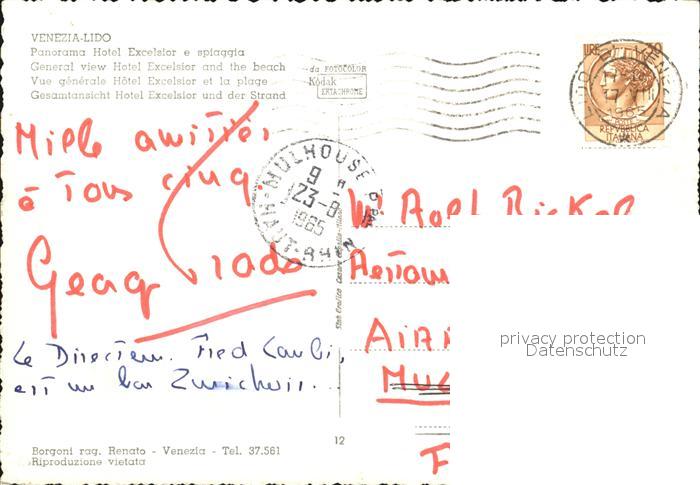 VENEZIA-LIDO
Panorama Hotel Excelsior e spiaggia
General view Hotel Excelsior and the beach
Vue générale Hôtel Excelsior et la plage
Gesamtansicht Hotel Excelsior und der Strand
da FOTOCOLOR
Kodak
EKTACHROME
LIRE 20
REPVBBLICA
ITALIANA
VENEZIA
1965
MULHOUSE
9 H
23-8
1965
HAUT-RHIN
Mille amitiés
à Tous cinq.
Le Directeur. Fred
est un bon Zurichois...
Mr
privacy protection
Datenschutz
12
Borgoni rag. Renato - Venezia - Tel. 37.561
Riproduzione vietata